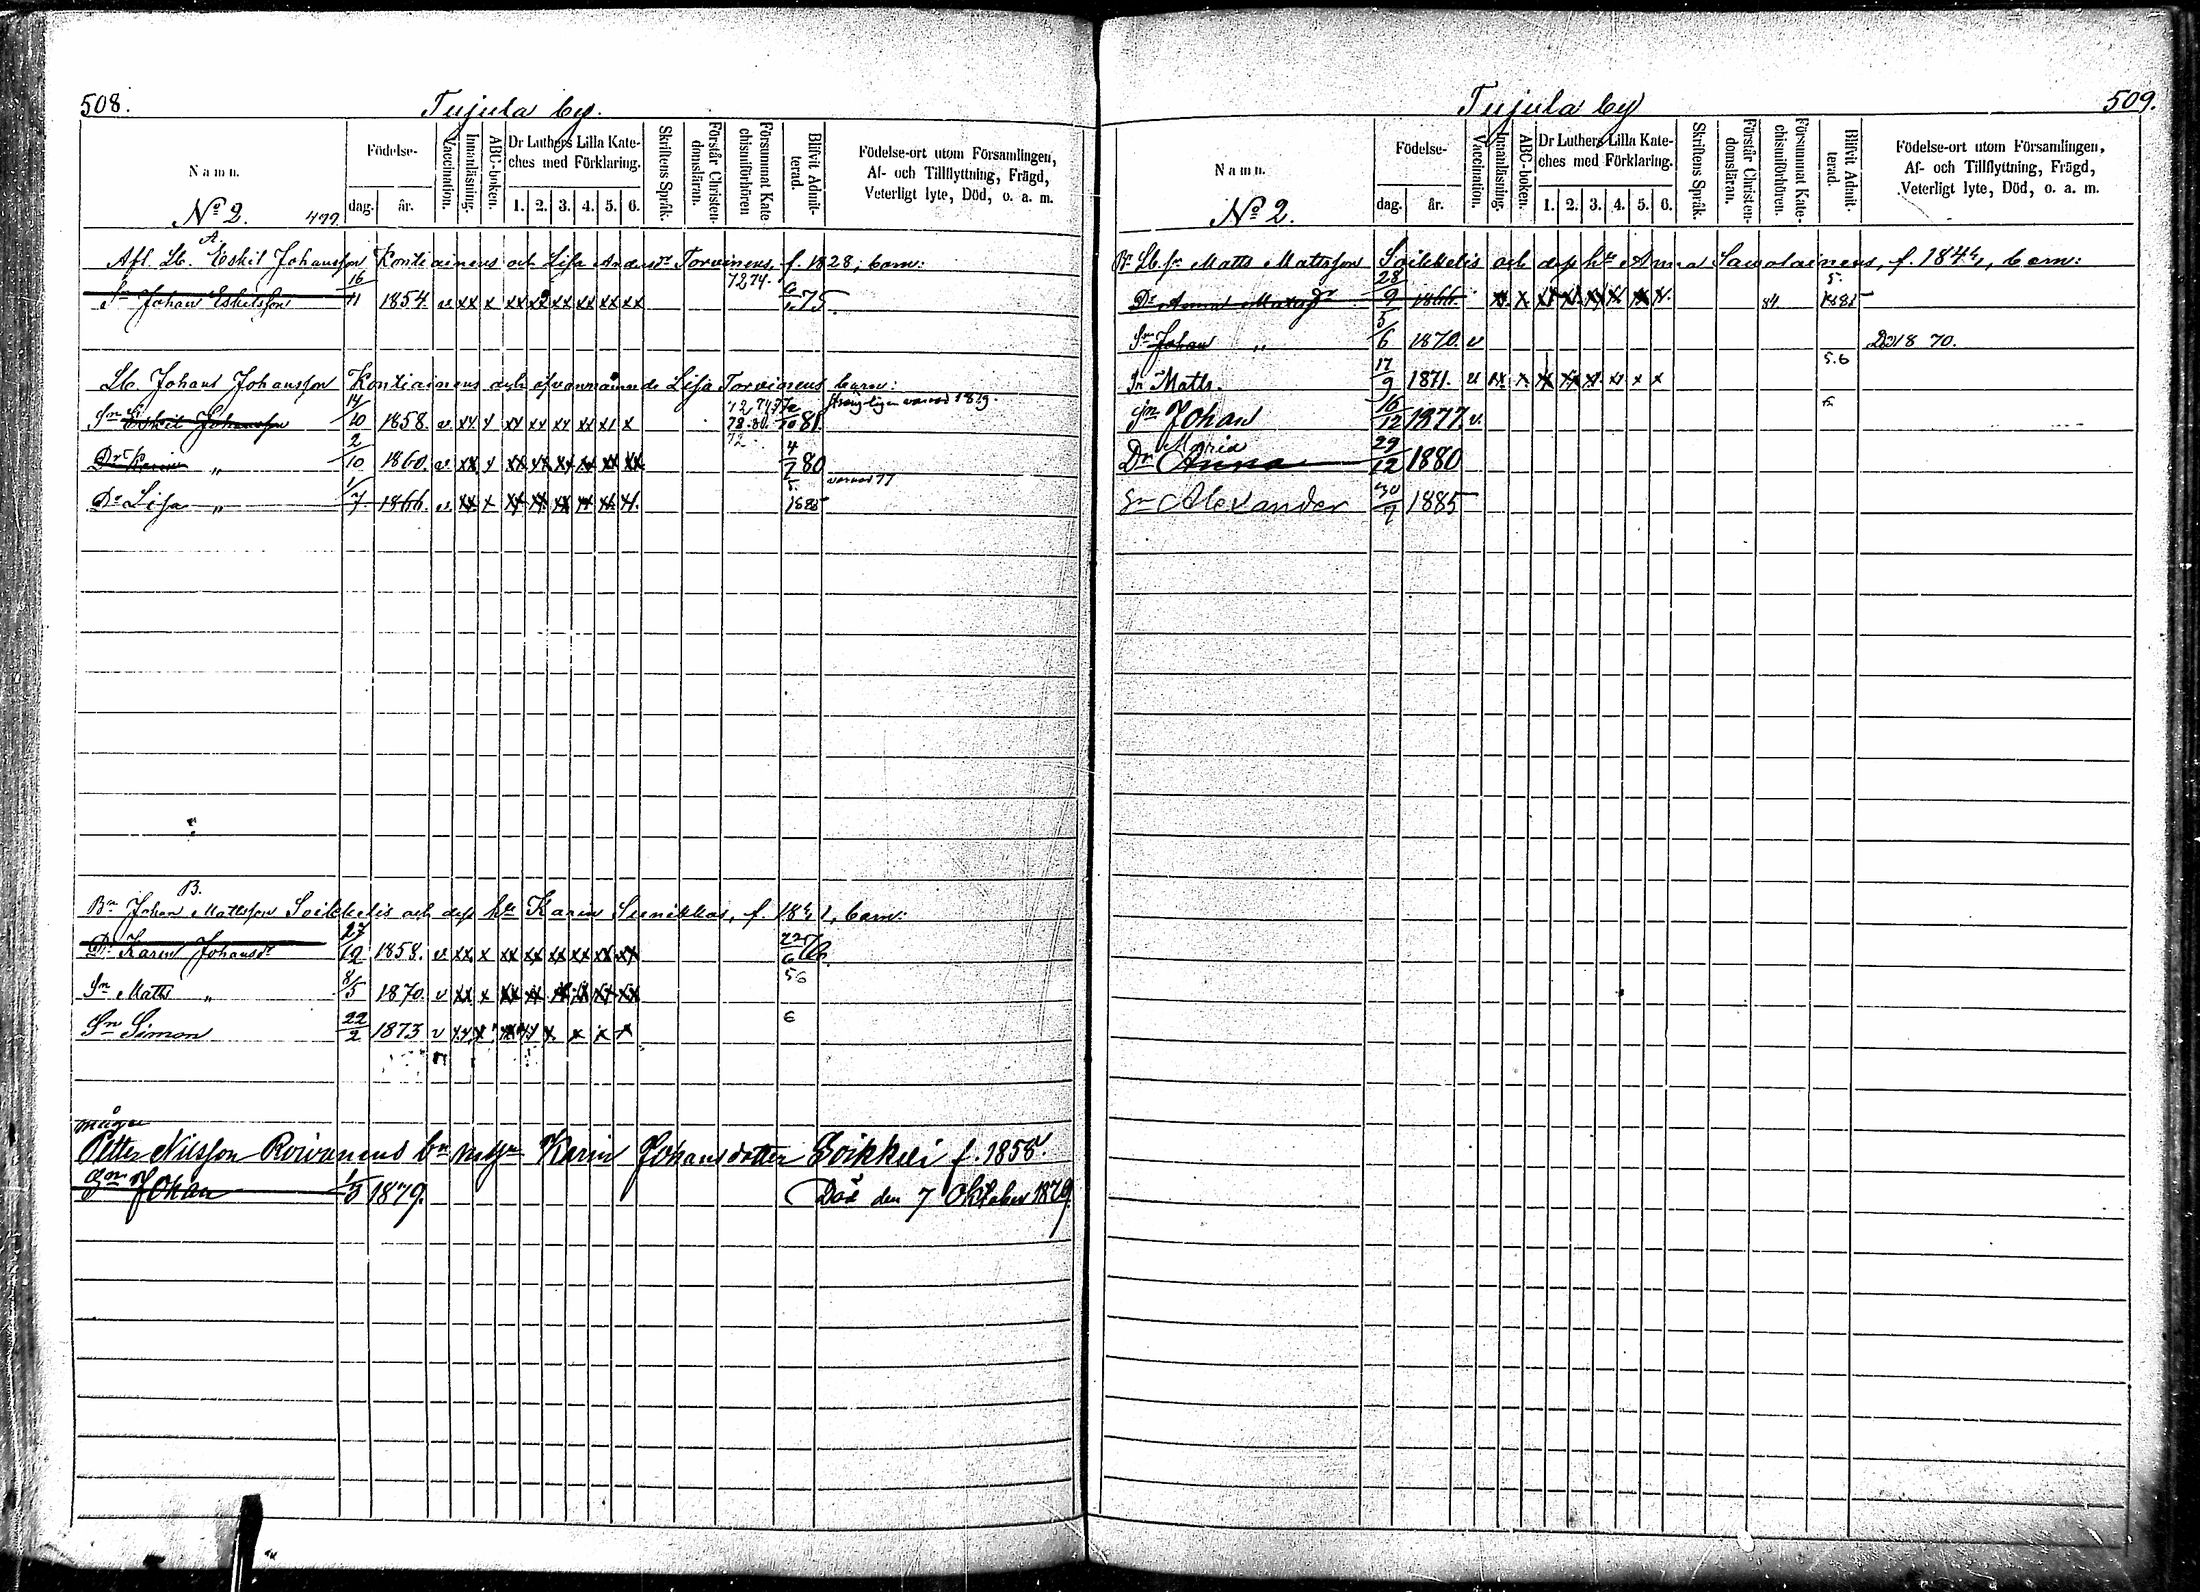 508. Tujula by.
Namn. Födelse- dag. år. Vaccination. Innanläsning. ABC-boken. Dr Luthers Lilla Kateches med Förklaring. 1. 2. 3. 4. 5. 6. Skriftens Språk. Förstår Christendomsläran. Försummat Katechismiförhören Blifvit Admitterad. Födelse-ort utom Församlingen, Af- och Tillflyttning, Frägd, Veterligt lyte, Död, o. a. m.
No 2. 499.
A.
Afl. Lb. Eskil Johansson Kontiainens och Lisa Andersdr Torvinens, f. 1828, barn:
Sn Johan Eskilsson 16/11 1854. v xx x xx xx xx xx xx xx 72 74. 75.
Lb. Johans Johansson Kontiainens och ofvannämnde Lisa Torvinens barn:
Sn Eskil Johansson 14/10 1858. v xx x xx xx xx xx xx x 81.
Dr Karin " 2/10 1860. v xx x xx xx xx xx xx xx 72. 4/7 80
Dr Lisa " 1/7 1866. v xx x xx xx xx xx xx xx 5. 1885
B.
Bn Johan Mattsson Soikkelis och dess hu Karin Sinikkas, f. 18 barn:
Dr Karin Johansdr 27/12 1858. v xx x xx xx xx xx xx xx 22/6 76.
Sn Matts " 8/5 1870. v xx x xx xx xx xx xx xx 56
Sn Simon 22/2 1873 v xx x xx xx x x x x 6
mågen
Petter Nilsson Roivainens bn m Karin Johansdotter Soikkeli f. 1858.
Sn Johan 1/5 1879. Död den 7 Oktober 1879.
509. Tujula by
Namn. Födelse- dag. år. Vaccination. Innanläsning. ABC-boken. Dr Luthers Lilla Kateches med Förklaring. 1. 2. 3. 4. 5. 6. Skriftens Språk. Förstår Christendomsläran. Försummat Katechismiförhören. Blifvit Admitterad. Födelse-ort utom Församlingen, Af- och Tillflyttning, Frägd, Veterligt lyte, Död, o. a. m.
No 2.
Lb. Sn Matts Mattsson Soikkelis och dess hu Anna Sawolainens, f. 184 barn:
Dr Anna Mattsdr 28/9 1866. x x xx xx xx xx xx x. 84 5. 1885
Sn Johan " 5/6 1870. v Död 18 70.
Sn Matts. 17/9 1871. v xx x xx xx xx xx x x 5.6
Sn Johan 16/12 1877. v.
Dr Maria Anna 29/12 1880
Sn Alexander 30/7 1885